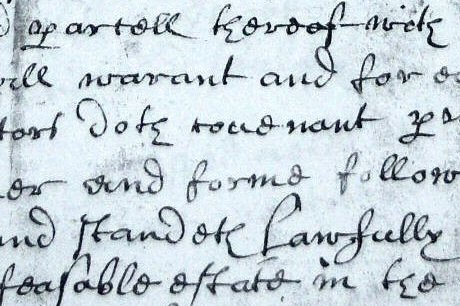 parcell thereof with
will warant and for
tors doth couenant
er and forme follow
and standeth Lawfully
feasable estate in the